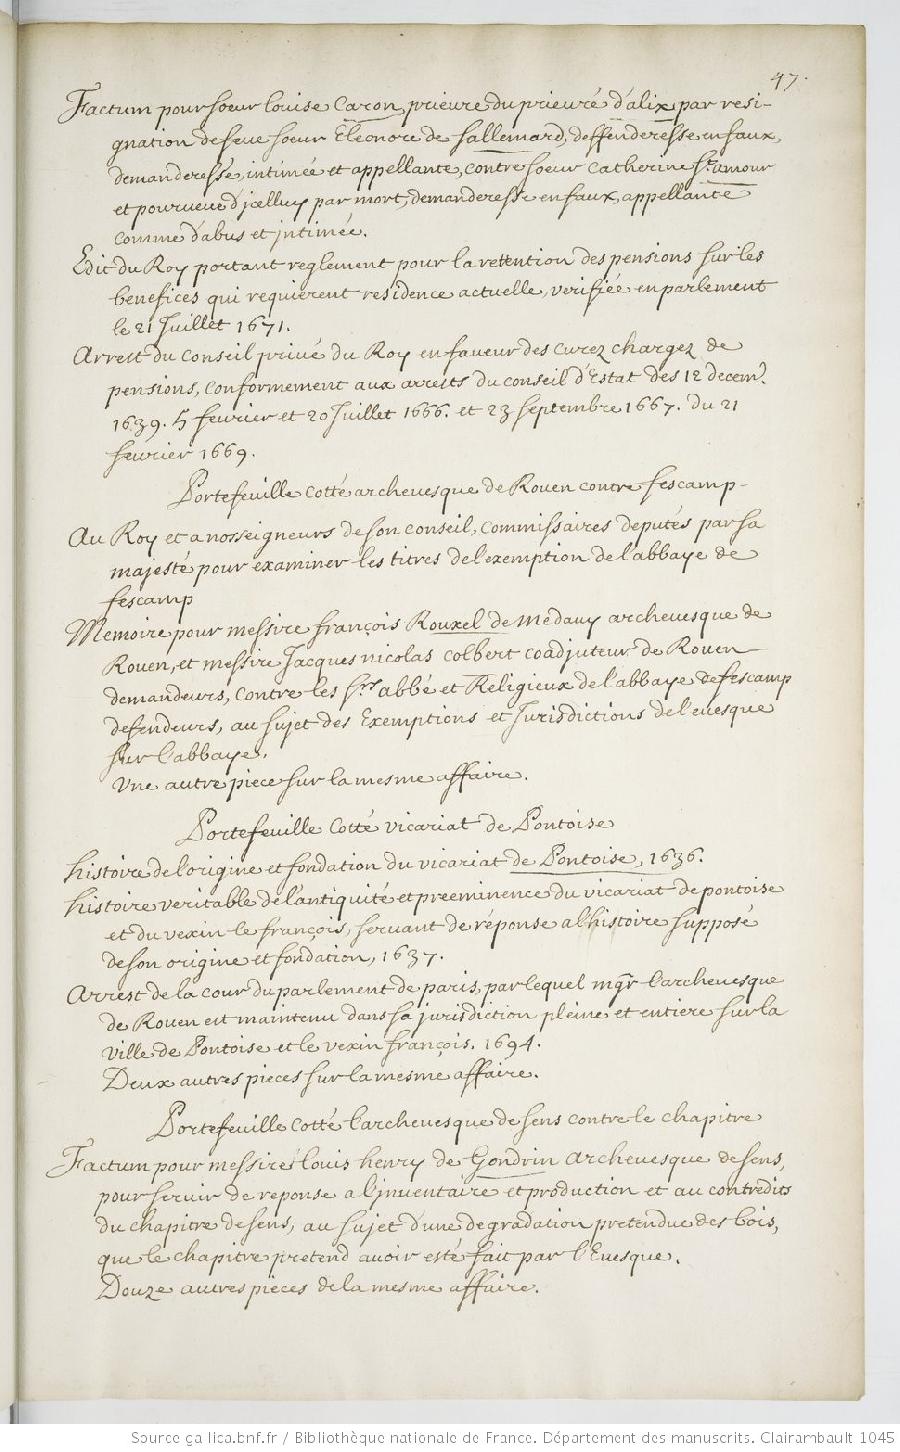 47.
Factum pour soeur Louise Caron, prieure du prieuré d'alix par resi-
gnation de feue soeur Eleonore de Sallemard, deffenderesse en faux,
demanderesse, intimée et appellante, contre soeur Catherine St. amour
et pourveue d'jcelluy par mort, demanderesse en faux, appellante
comme d'abus et jntimée.
Edit du Roy portant reglement pour la retention des pensions sur les
benefices qui requierent residence actuelle, verifiée en parlement
le 21 Juillet 1671.
Arrest du Conseil privé du Roy en faveur des curez chargez de
pensions, conformement aux arrests du conseil d'Estat des 12 decem.
1639. 5 fevrier et 20 Juillet 1666. et 23 septembre 1667. du 21
fevrier 1669.
Portefeuille cotté archevesque de Rouen contre fescamp-
Au Roy et a nosseigneurs de son conseil, commissaires deputés par sa
majesté pour examiner les titres de l'exemption de l'abbaye de
fescamp
Memoire pour messire françois Rouxel de medauy archevesque de
Rouen, et messire Jacques nicolas colbert coadjuteur de Rouen
demandeurs, contre les srs. abbé et Religieux de l'abbaye de fescamp
defendeurs, au sujet des Exemptions et Jurisdictions de l'evesque
sur l'abbaye.
Une autre piece sur la mesme affaire.
Portefeuille Cotté vicariat de Pontoise
histoire de l'origine et fondation du vicariat de Pontoise, 1636.
histoire veritable de l'antiquité et preeminence du vicariat de pontoise
et du vexin le françois, servant de réponse a l'histoire supposé
de son origine et fondation, 1637.
Arrest de la cour du parlement de paris, par lequel mgr l'archevesque
de Rouen est maintenu dans sa jurisdiction pleine et entiere sur la
ville de Pontoise et le vexin françois. 1694.
Deux autres pieces sur la mesme affaire.
Portefeuille Cotté l'archevesque de sens contre le chapitre
Factum pour messire Louis henry de Gondrin archevesque de sens,
pour servir de reponse a l'jnventaire et production et au contredits
du chapitre de sens, au sujet d'une degradation pretendue des bois,
que le chapitre pretend avoir esté fait par l'Evesque.
Douze autres pieces de la mesme affaire.
Source gallica.bnf.fr / Bibliothèque nationale de France. Département des manuscrits. Clairambault 1045